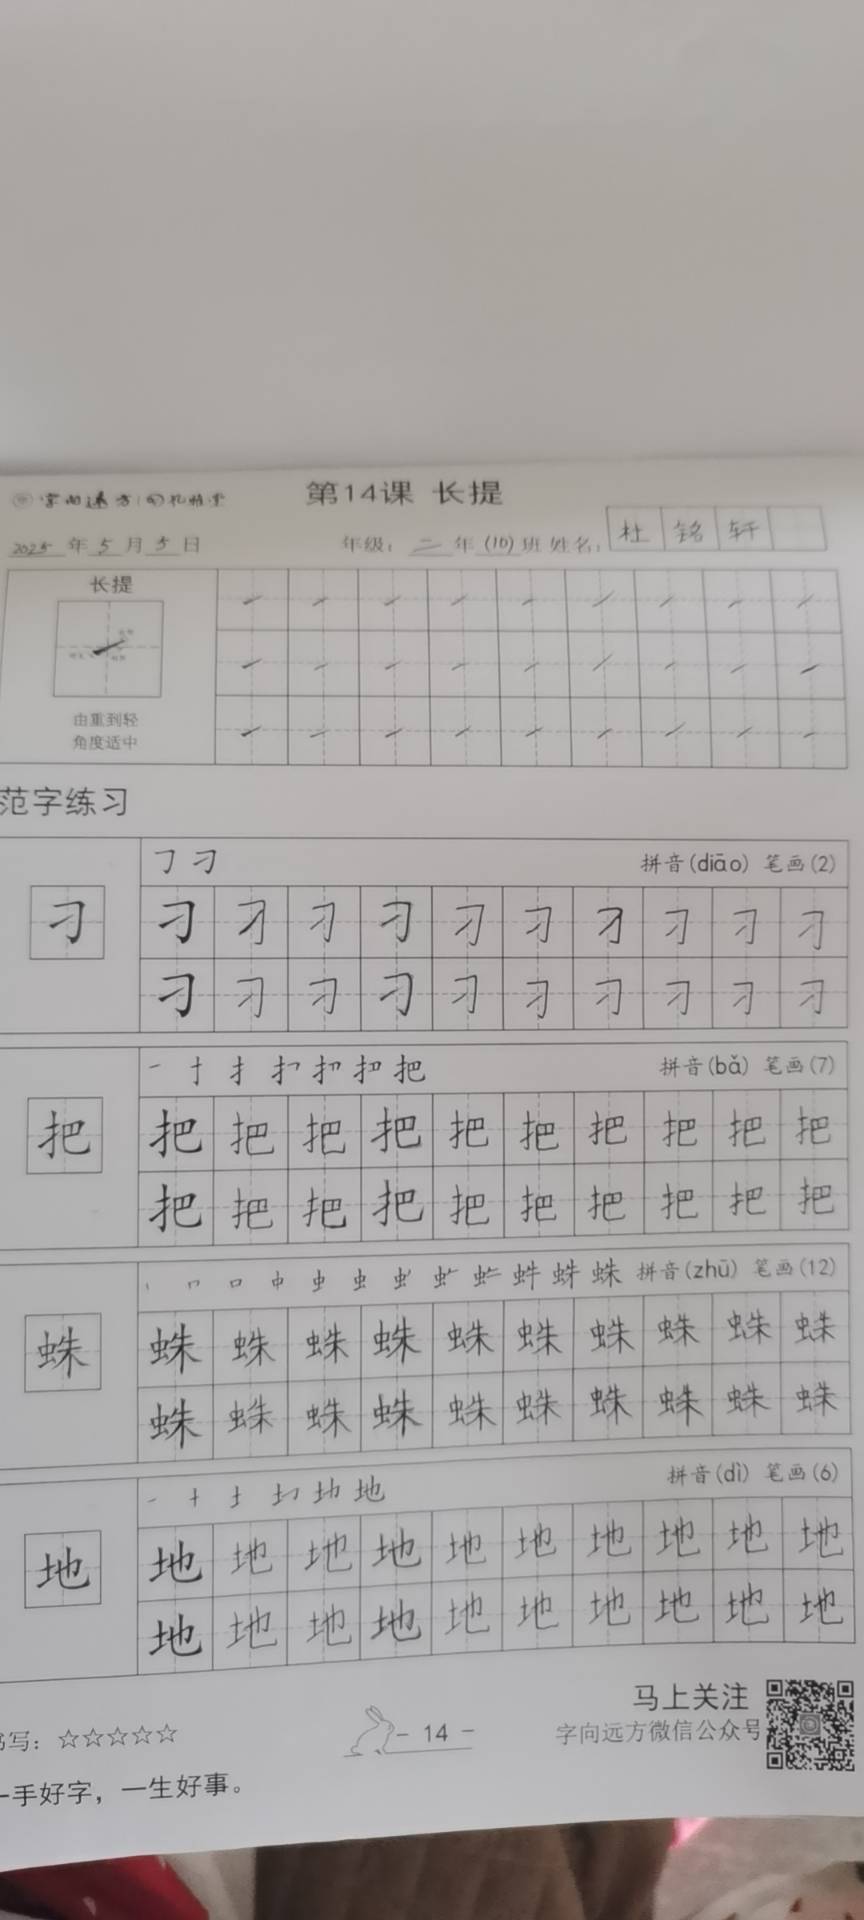 字向远方
第14课 长提
2025年5月5日 年级：二年(10)班 姓名：杜铭轩
长提
由重到轻
角度适中
范字练习
㇆ 刁 拼音(diāo) 笔画(2)
刁 刁 刁 刁 刁 刁 刁 刁 刁 刁 刁
刁 刁 刁 刁 刁 刁 刁 刁 刁 刁
把 拼音(bǎ) 笔画(7)
把 把 把 把 把 把 把 把 把 把 把
把 把 把 把 把 把 把 把 把 把
蛛 拼音(zhū) 笔画(12)
蛛 蛛 蛛 蛛 蛛 蛛 蛛 蛛 蛛 蛛 蛛
蛛 蛛 蛛 蛛 蛛 蛛 蛛 蛛 蛛 蛛
地 拼音(dì) 笔画(6)
地 地 地 地 地 地 地 地 地 地 地
地 地 地 地 地 地 地 地 地 地
马上关注
写：☆☆☆☆☆ - 14 - 字向远方微信公众号
一手好字，一生好事。